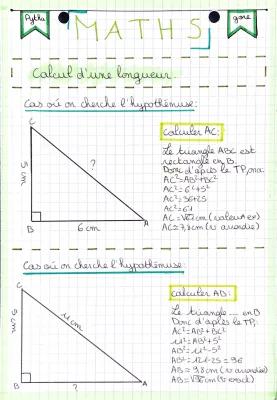 Pytha
MATHS
gore
Calcul d'une longueur.
Cas où on cherche l'hypothénuse:
C
5 cm
?
B
6 cm
A
calculer AC:
Le triangle ABC est
rectangle en B.
Donc d'après le TP, on a:
AC²=AB²+BC²
AC²=6²+5²
AC²=36+25
AC²=61
AC=√61 cm (valeur ex)
AC≈7,8cm (v arrondie)
Cas où on cherche l'hypothénuse:
C
5 cm
11 cm
B
?
A
calculer AB:
Le triangle ... en B
Donc d'après le TP:
AC²=AB²+BC²
11²=AB²+5²
AB²=11²-5²
AB²=121-25=96
AB≈9,8cm (v arrondie)
AB=√96 cm (v exact)